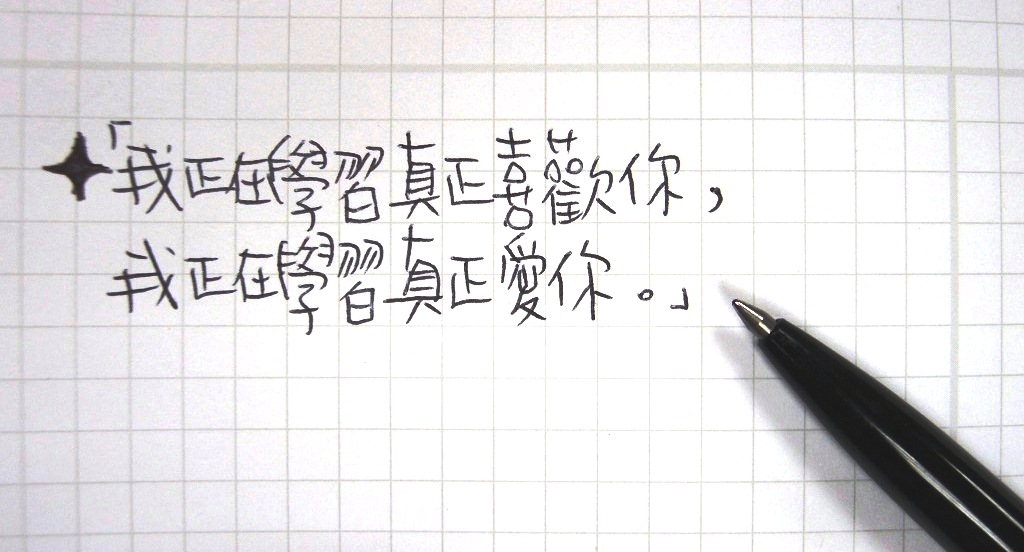 ✦「我正在學習真正喜歡你，
我正在學習真正愛你。」